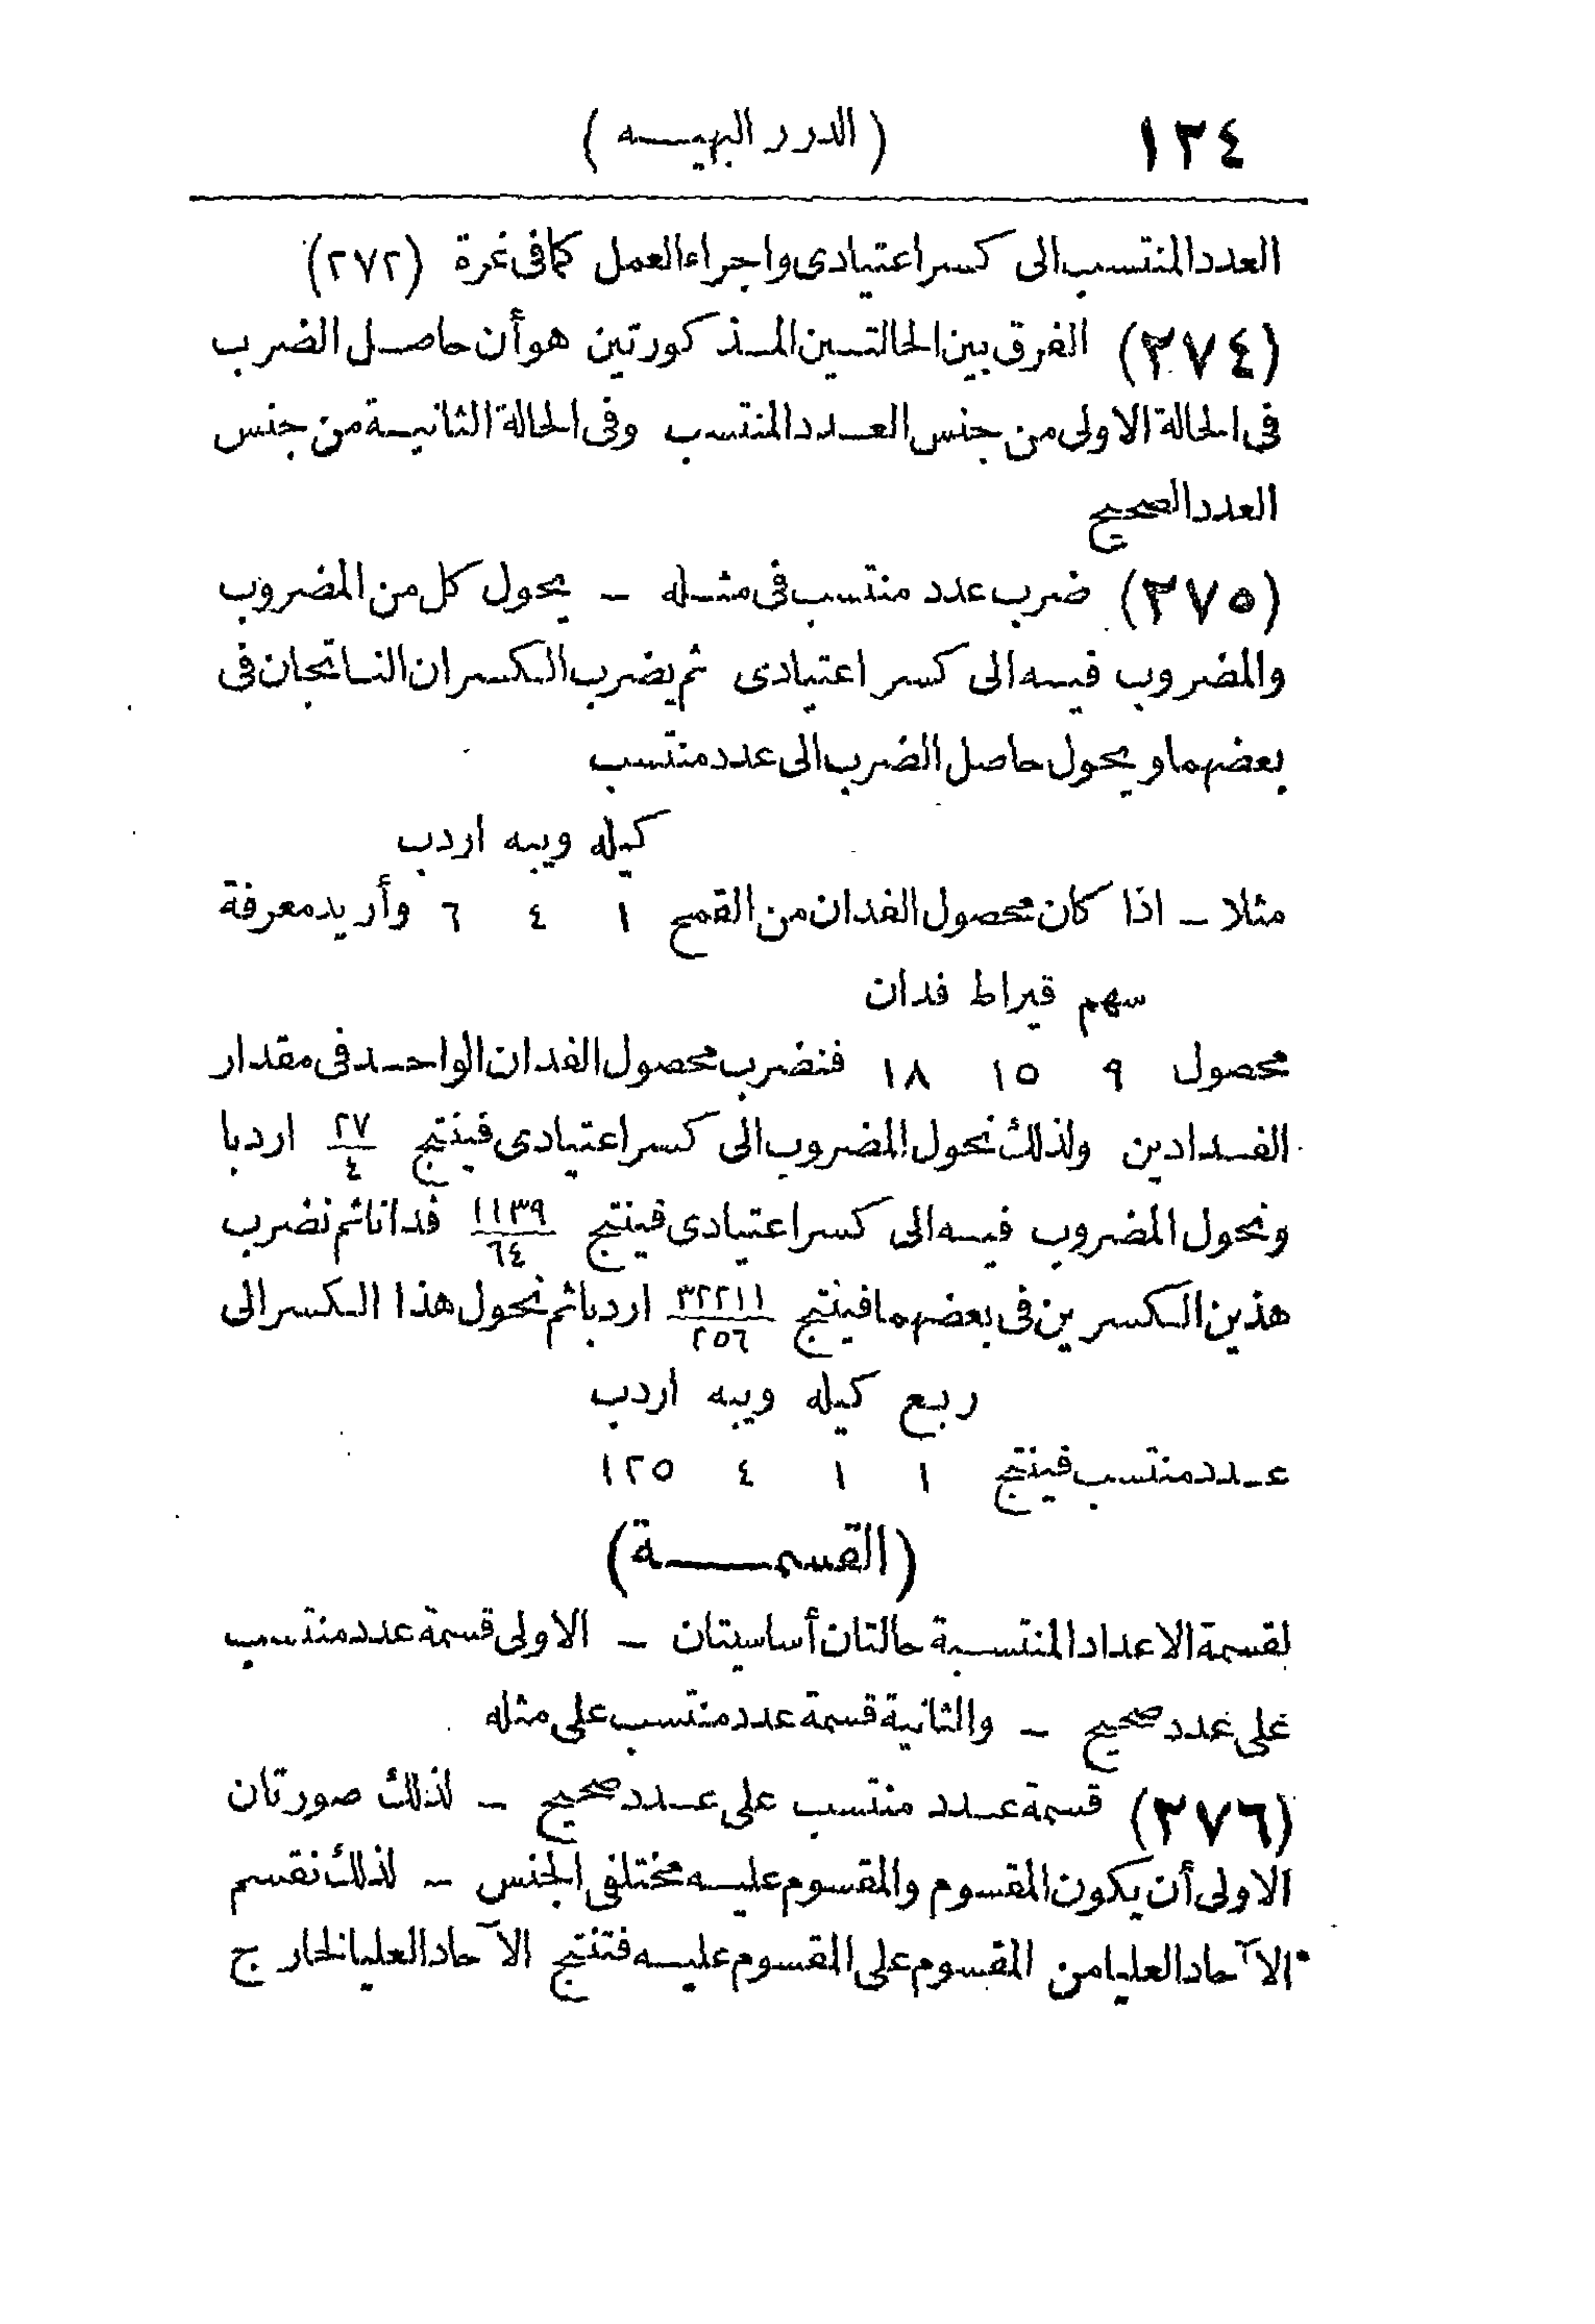 ١٣٤ (الدرر البهيه)
العدد المنتسب الى كسر اعتيادى واجراء العمل كما فى نمرة (٢٧٢)
(٢٧٤) الفرق بين الحالتين المذكورتين هو أن حاصل الضرب
فى الحالة الاولى من جنس العدد المنتسب وفى الحالة الثانية من جنس
العدد الصحيح
(٢٧٥) ضرب عدد منتسب فى مثله - يحول كل من المضروب
والمضروب فيه الى كسر اعتيادى ثم يضرب الكسران الناتجان فى
بعضهما ويحول حاصل الضرب الى عدد منتسب
كيله ويبه اردب
مثلا - اذا كان محصول الفدان من القمح ١ ٤ ٦ وأريد معرفة
سهم قيراط فدان
محصول ٩ ١٥ ١٨ فنضرب محصول الفدان الواحد فى مقدار
الفدادين ولذلك نحول المضروب الى كسر اعتيادى فينتج ٢٧/٤ اردبا
ونحول المضروب فيه الى كسر اعتيادى فينتج ١١٣٩/٦٤ فدانا ثم نضرب
هذين الكسرين فى بعضهما فينتج ٣٢٢١١/٢٥٦ اردبا ثم نحول هذا الكسر الى
ربع كيله ويبه اردب
عدد منتسب فينتج ١ ١ ٤ ١٢٥
(القسمة)
لقسمة الاعداد المنتسبة حالتان أساسيتان - الاولى قسمة عدد منتسب
على عدد صحيح - والثانية قسمة عدد منتسب على مثله
(٢٧٦) قسمة عدد منتسب على عدد صحيح - لذلك صورتان
الاولى أن يكون المقسوم والمقسوم عليه مختلفى الجنس - لذلك نقسم
الآحاد العليا من المقسوم على المقسوم عليه فتنتج الآحاد العليا لخارج